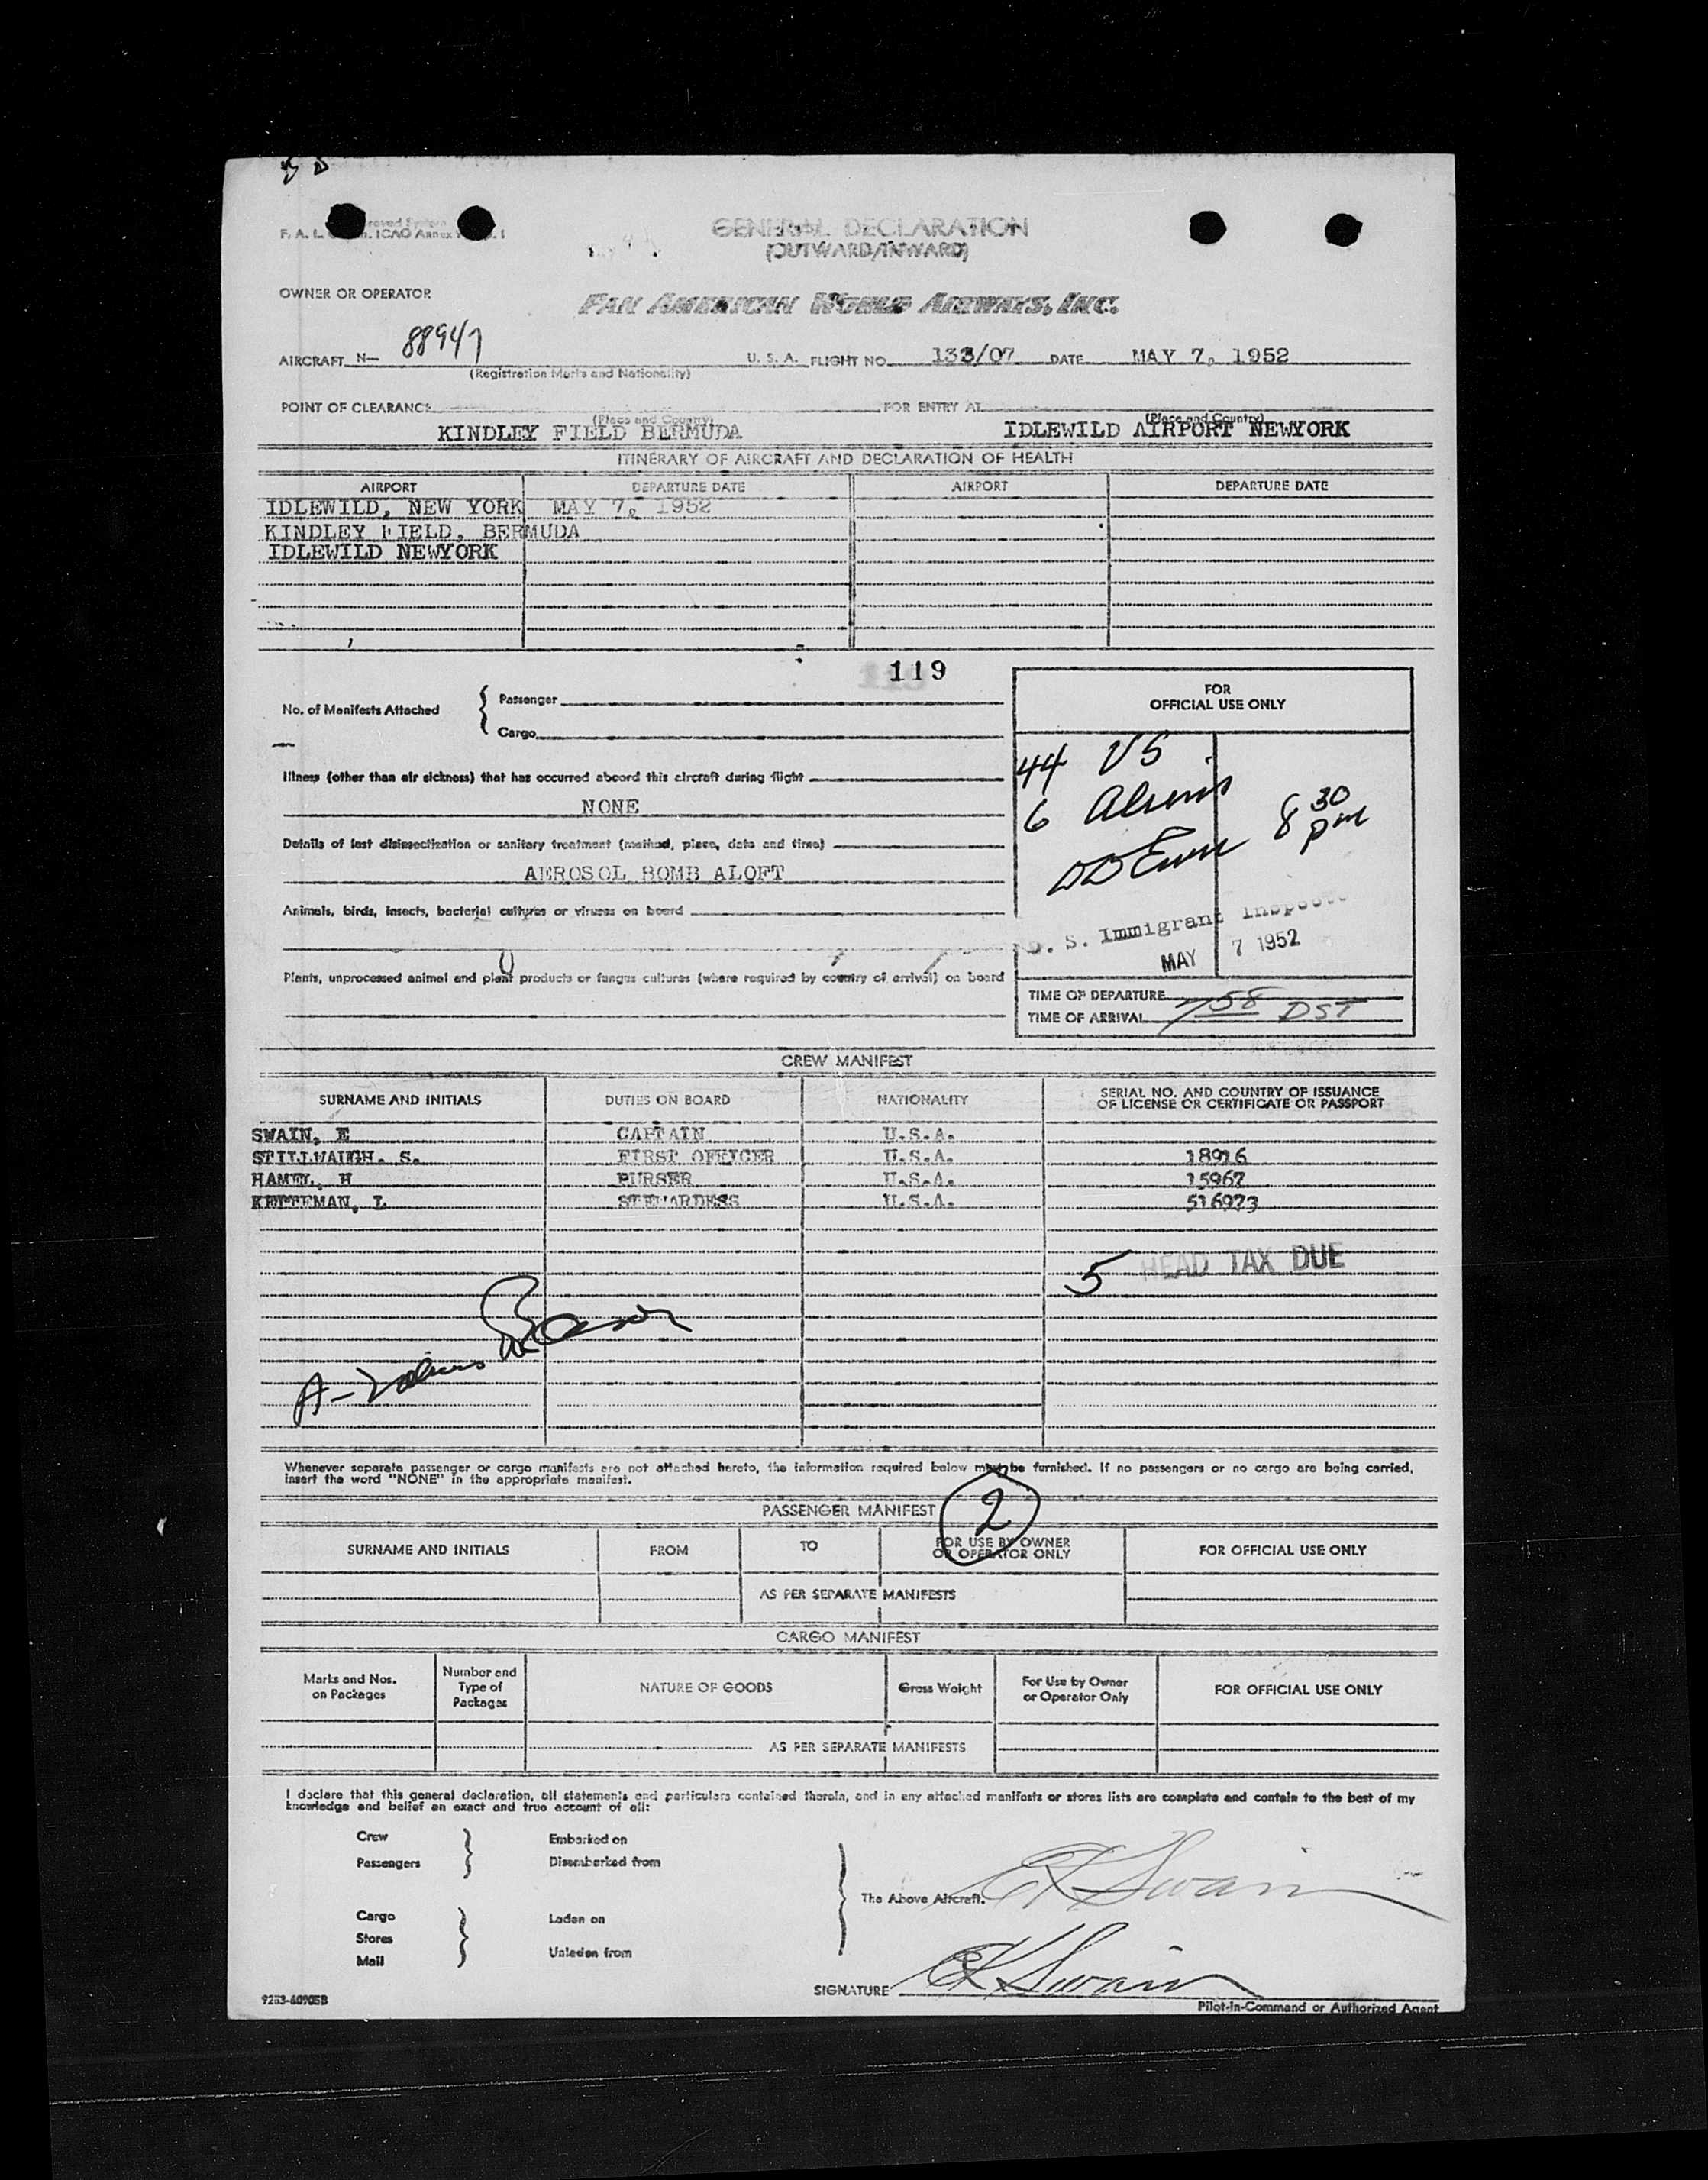 GENERAL DECLARATION
(OUTWARD/INWARD)
OWNER OR OPERATOR PAN AMERICAN WORLD AIRWAYS, INC.
AIRCRAFT N— 88947 U. S. A. FLIGHT NO. 133/07 DATE MAY 7, 1952
(Registration Marks and Nationality)
POINT OF CLEARANCE FOR ENTRY AT
(Place and Country) (Place and Country)
KINDLEY FIELD BERMUDA IDLEWILD AIRPORT NEWYORK
ITINERARY OF AIRCRAFT AND DECLARATION OF HEALTH
AIRPORT DEPARTURE DATE AIRPORT DEPARTURE DATE
IDLEWILD, NEW YORK MAY 7, 1952
KINDLEY FIELD, BERMUDA
IDLEWILD NEWYORK
119
No. of Manifests Attached { Passenger
Cargo
FOR
OFFICIAL USE ONLY
44 US
6 Aliens
8 30 pm
U. S. Immigrant Inspector
MAY 7 1952
TIME OF DEPARTURE
TIME OF ARRIVAL 7 58 DST
Illness (other than air sickness) that has occurred aboard this aircraft during flight
NONE
Details of last disinsectization or sanitary treatment (method, place, date and time)
AEROSOL BOMB ALOFT
Animals, birds, insects, bacterial cultures or viruses on board
Plants, unprocessed animal and plant products or fungus cultures (where required by country of arrival) on board
CREW MANIFEST
SURNAME AND INITIALS DUTIES ON BOARD NATIONALITY SERIAL NO. AND COUNTRY OF ISSUANCE
OF LICENSE OR CERTIFICATE OR PASSPORT
SWAIN, E CAPTAIN U.S.A.
STILLWAUGH. S. FIRST OFFICER U.S.A. 18916
HAMEL, H PURSER U.S.A. 15967
L STEWARDESS U.S.A. 516973
5 HEAD TAX DUE
Whenever separate passenger or cargo manifests are not attached hereto, the information required below must be furnished. If no passengers or no cargo are being carried,
insert the word "NONE" in the appropriate manifest.
2
PASSENGER MANIFEST
SURNAME AND INITIALS FROM TO FOR USE BY OWNER
OR OPERATOR ONLY FOR OFFICIAL USE ONLY
AS PER SEPARATE MANIFESTS
CARGO MANIFEST
Marks and Nos.
on Packages Number and
Type of
Packages NATURE OF GOODS Gross Weight For Use by Owner
or Operator Only FOR OFFICIAL USE ONLY
AS PER SEPARATE MANIFESTS
I declare that this general declaration, all statements and particulars contained therein, and in any attached manifests or stores lists are complete and contain to the best of my
knowledge and belief an exact and true account of all:
Crew Embarked on
Passengers Disembarked from
The Above Aircraft. EK Swain
Cargo Laden on
Stores
Mail Unladen from
SIGNATURE EK Swain
9263-60905B Pilot-in-Command or Authorized Agent